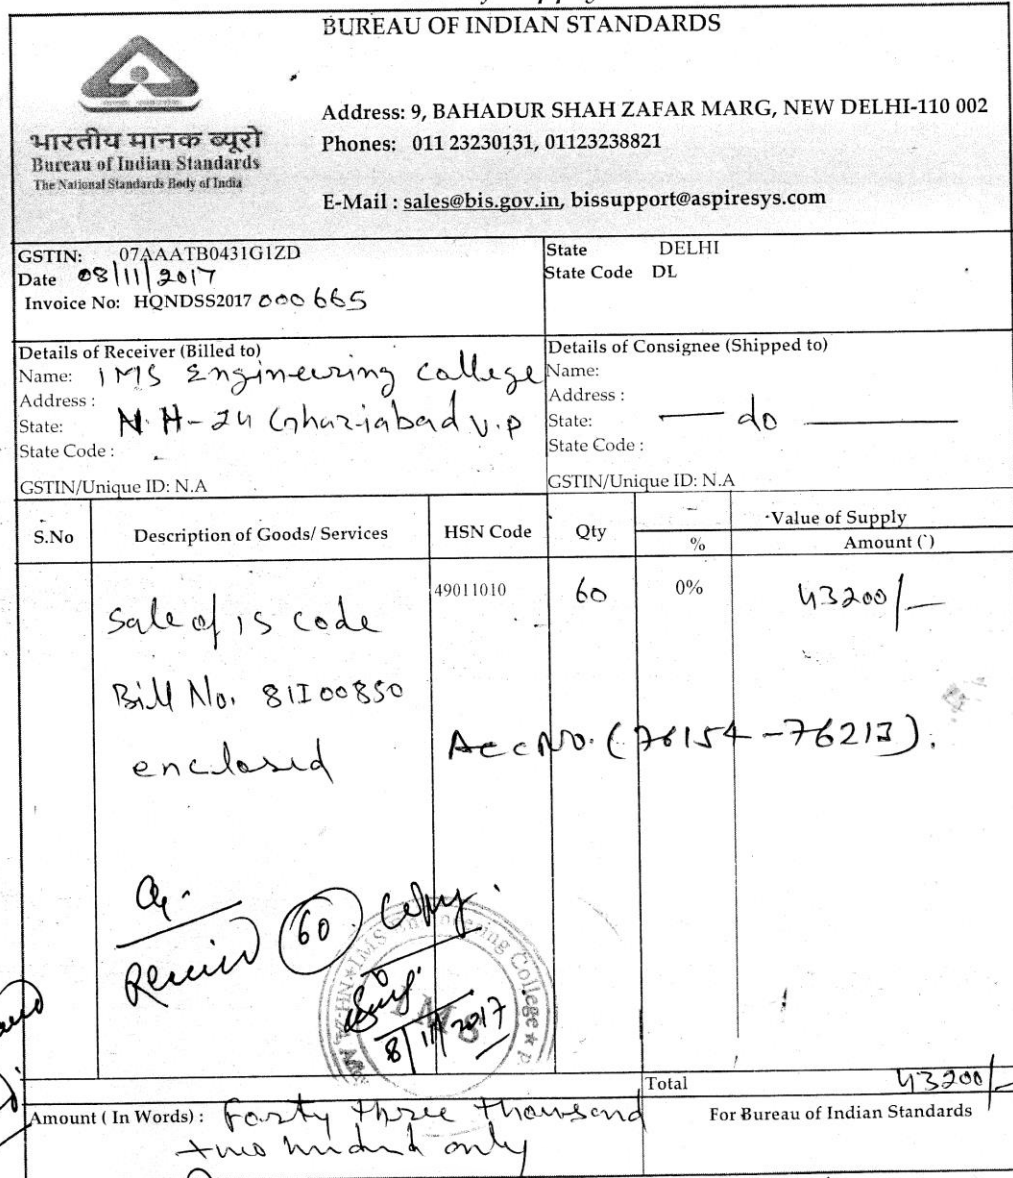 BUREAU OF INDIAN STANDARDS
भारतीय मानक ब्यूरो
Bureau of Indian Standards
The National Standards Body of India
Address: 9, BAHADUR SHAH ZAFAR MARG, NEW DELHI-110 002
Phones: 011 23230131, 01123238821
E-Mail : sales@bis.gov.in, bissupport@aspiresys.com
GSTIN: 07AAATB0431G1ZD
Date 08/11/2017
Invoice No: HQNDSS2017 000665
State DELHI
State Code DL
Details of Receiver (Billed to)
Name: IMS Engineering College
Address :
State: N.H-24 Ghaziabad U.P
State Code :
GSTIN/Unique ID: N.A
Details of Consignee (Shipped to)
Name:
Address :
State: — do —
State Code :
GSTIN/Unique ID: N.A
S.No Description of Goods/ Services HSN Code Qty % Value of Supply
Amount (`)
Sale of IS code 49011010 60 0% 43200/-
Bill No. 81I00850
enclosed
Acc No. (76154-76213).
Received 60 Copy
8/11/2017
IMS Engineering College
IMS
Total 43200/-
Amount ( In Words) : Forty three thousand
two hundred only
For Bureau of Indian Standards